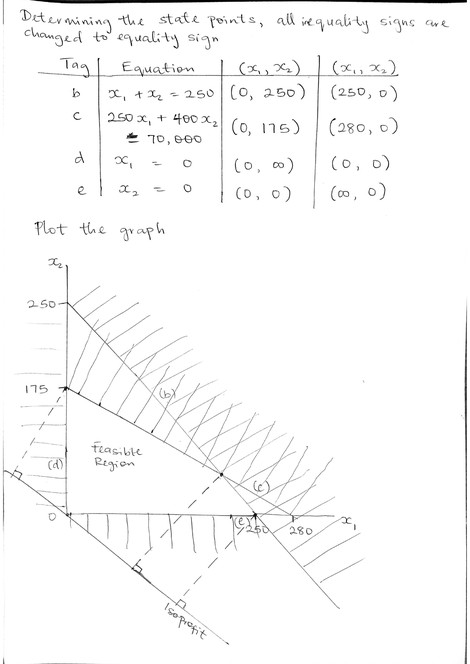 Determining the state points, all inequality signs are
changed to equality sign
Tag Equation (x₁, x₂) (x₁, x₂)
b x₁ + x₂ = 250 (0, 250) (250, 0)
c 250x₁ + 400x₂ = 70,000 (0, 175) (280, 0)
d x₁ = 0 (0, ∞) (0, 0)
e x₂ = 0 (0, 0) (∞, 0)
Plot the graph
x₂
250
175
(b)
Feasible
Region
(d)
(c)
0
(e)
250
280
x₁
Isoprofit